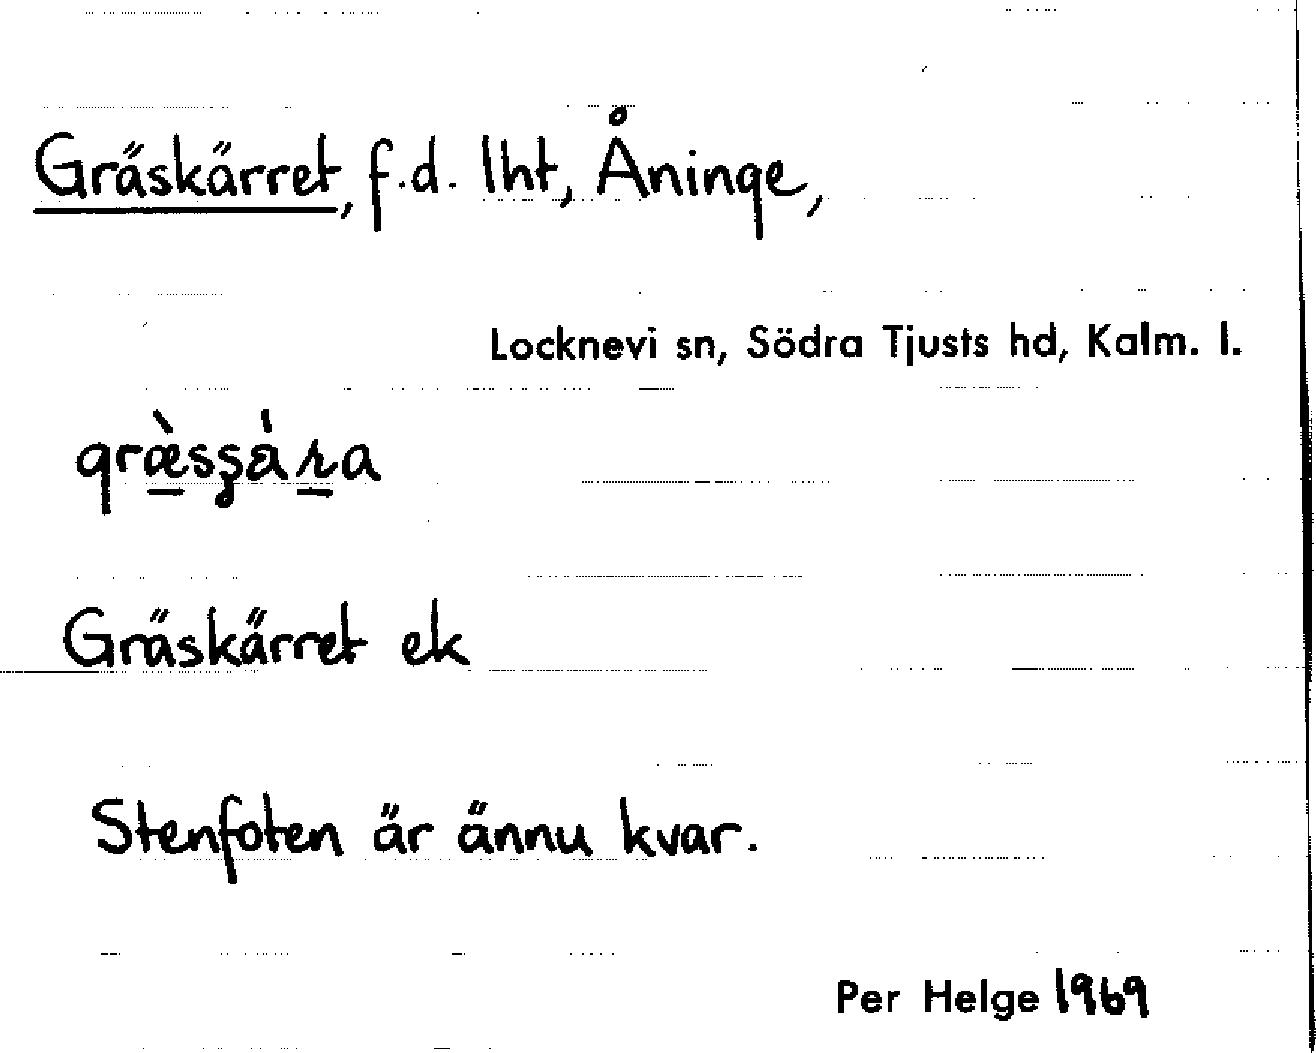 Gräskärret, f.d. lht, Åninge,
Locknevi sn, Södra Tjusts hd, Kalm. l.
Gräskärret ek
Stenfoten är ännu kvar.
Per Helge 1969